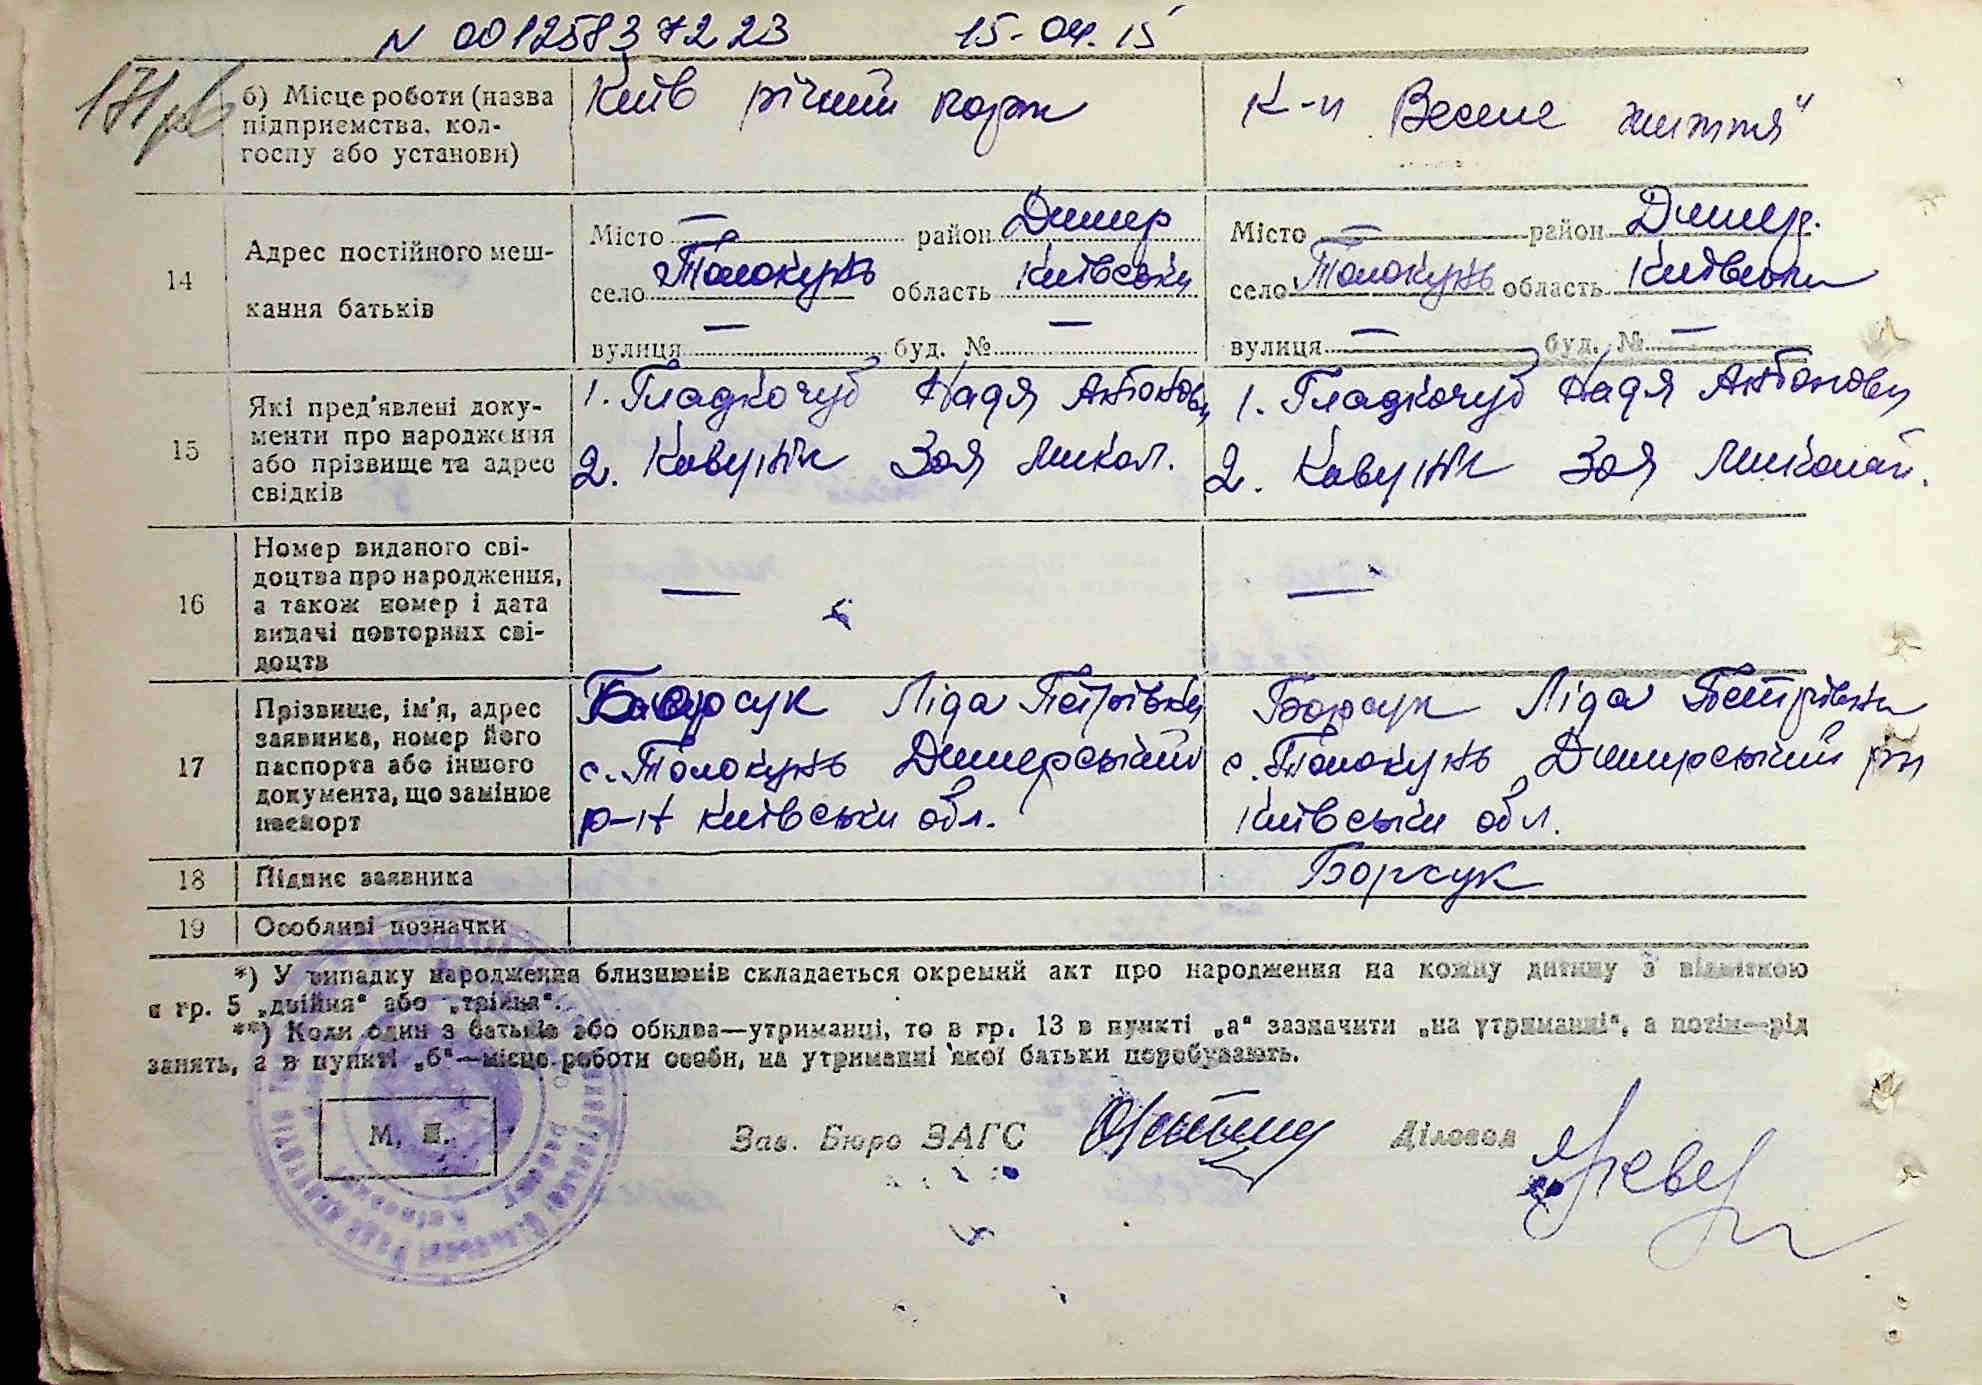 N 00125837223 15-04.15
171
б) Місце роботи (назва підприємства, колгоспу або установи)
Київ річний порт
К-п Веселе життя"
14
Адрес постійного мешкання батьків
Місто — район Димер
село Толокунь область Київська
вулиця — буд. № —
Місто — район Димер.
село Толокунь область Київська
вулиця — буд. № —
15
Які пред'явлені документи про народження або прізвище та адрес свідків
1. Гладкочуб Надя Антонов
2. Кавунік Зоя Микол.
1. Гладкочуб Надя Антонов
2. Кавунік Зоя Миколай.
16
Номер виданого свідоцтва про народження, а також номер і дата видачі повторних свідоцтв
—
—
17
Прізвище, ім'я, адрес заявника, номер його паспорта або іншого документа, що замінює паспорт
Борсук Ліда Петрівна
с. Толокунь Димерський
р-н Київськи обл.
Борсук Ліда Петрівна
с. Толокунь Димерський рн
Київськи обл.
18
Підпис заявника
Борсук
19
Особливі позначки
*) У випадку народження близнюків складається окремий акт про народження на кожну дитину з відміткою
в гр. 5 „двійня" або „трійня".
**) Коли один з батьків або обидва—утриманці, то в гр. 13 в пункті „а" зазначити „на утриманні", а потім—рід
занять, а в пункті „б"—місце роботи особи, на утриманні якої батьки перебувають.
М. П.
Зав. Бюро ЗАГС
Діловод